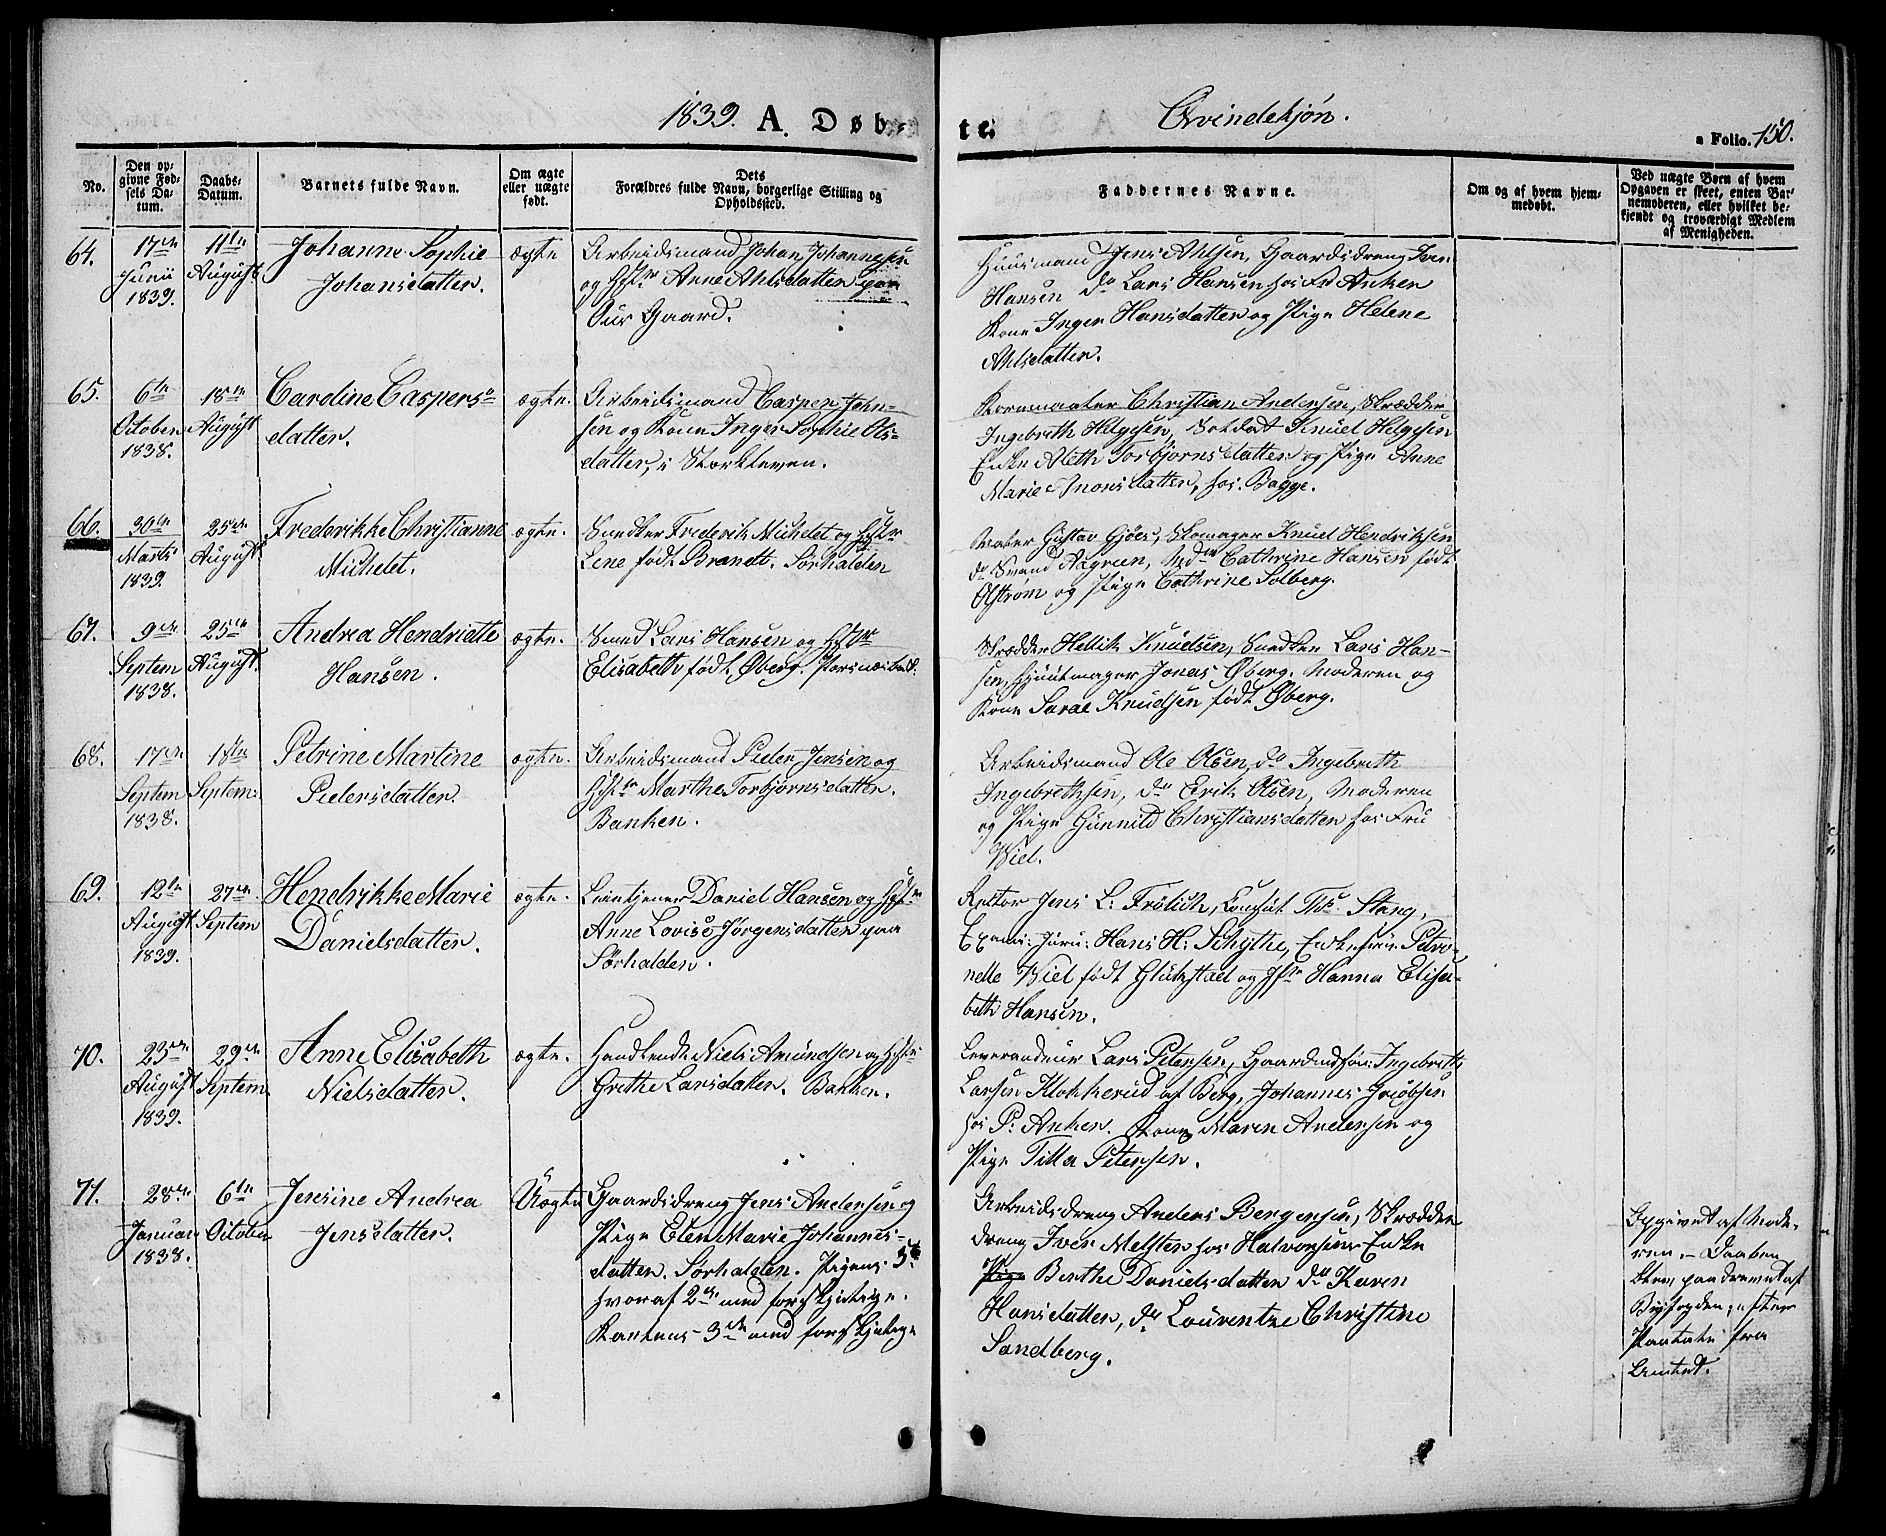 1839. A. Døb-
te. Qvindekjøn.
a Folio. 150.
No.
Den op-
givne Fød-
sels Da-
tum.
Daabs-
Datum.
Barnets fulde Navn.
Om ægte
eller uægte
født.
Dets
Forældres fulde Navn, borgerlige Stilling og
Opholdssted.
Faddernes Navne.
Om og af hvem hjem-
medøbt.
Ved uægte Børn af hvem
Opgaven er skeet, enten Bar-
nemoderen, eller hvilket be-
kjendt og troværdigt Medlem
af Menigheden.
64.
17de
Junii
1839.
11te
August
Johanne Sophie
Johansdatter.
ægte
Arbeidsmand Johan Johannesen
og Hstr Anne Ahlsdatter paa
Ous Gaard.
Huusmand Jens Ahlsen, Gaardsdreng
Hansen do Lars Hansen hos Fr Anker
Kone Inger Hansdatter og Pige Helene
Ahlsdatter.
65.
6te
October
1838.
18de
August
Caroline Caspers-
datter.
ægte.
Arbeidsmand Casper John-
sen og Kone Inger Sophie Ols-
datter, i Storkleven.
Kornmaaler Christian Andersen, Skrædder
Ingebreth Helgesen, Soldat Knud Helgesen
Enke Aleth Torbjørnsdatter og Pige Anne
Marie Monsdatter, hos Bagge.
66.
30te
Marts
1839.
25de
August
Frederikke Christianne
Michelet.
ægte.
Snedker Frederik Michelet og Hstr
Lene født Brandt. Sørhalden
Maler Gustav Gjöes, Skomager Knud Hendriksen
do Svend Aagreen, Mdm Cathrine Hansen født
Olstrøm og Pige Cathrine Solberg.
67.
9de
Septem
1838.
25de
August.
Andrea Hendriette
Hansen.
ægte.
Smed Lars Hansen og Hstr
Elisabeth født Øberg.
Skrædder Hellik Knudsen, Snedker Lars Han-
sen, Hjulmager Jonas Øberg. Moderen og
Kone Sarae Knudsen født Øberg.
68.
17de
Septem
1838.
18de
Septem.
Petrine Martine
Pedersdatter.
ægte.
Arbeidsmand Peder Jensen og
Hstr Marthe Torbjørnsdatter.
Banken.
Arbeidsmand Ole Olsen, do Ingebreth
Ingebrethsen, do Erik Olsen, Moderen
og Pige Gunnild Christiansdatter hos Fru
Wiel.
69.
12te
August
1839.
27de
Septem
Hendrikke Marie
Danielsdatter.
ægte.
Leietjener Daniel Hansen og Hstr
Anne Lovise Jørgensdatter paa
Sørhalden.
Rector Jens L. Frölich, Consul Ths. Stang,
Exami: Juru: Hans H. Schythe, Enkefrue Petro-
nelle Wiel født Glückstad og Jfr Hanna Elisa-
beth Hansen.
70.
23de
August
1839.
29de
Septem
Anne Elisabeth
Nielsdatter.
ægte.
Handlende Niels Amundsen og Hstr
Grethe Larsdatter. Banken.
Leverandeur Lars Petersen, Gaardmand Ingebreth
Larsen Klokkerud af Berg, Johannes Jacobsen
hos P. Anker. Kone Maren Andersen og
Pige Tilla Petersen.
71.
28de
Januar
1838.
6te
October
Jensine Andrea
Jensdatter.
Uægte
Gaardsdreng Jens Andersen og
Pige Elen Marie Johannes-
datter. Sørhalden. Pigens 3de
hvoraf 2de med forskjelige.
Karlens 3de med forskjelige
Arbeidsdreng Anders Bergersen, Skrædder
dreng Iver Melsten hos Halvorsens Enke
Pige Berthe Danielsdatter do Karen
Hansdatter, do Lourentze Christine
Sandberg.
Opgivet af Mode-
ren. - Daaben
blev paadrevet af
Byfogden, efter
Paatale fra
Amtet.